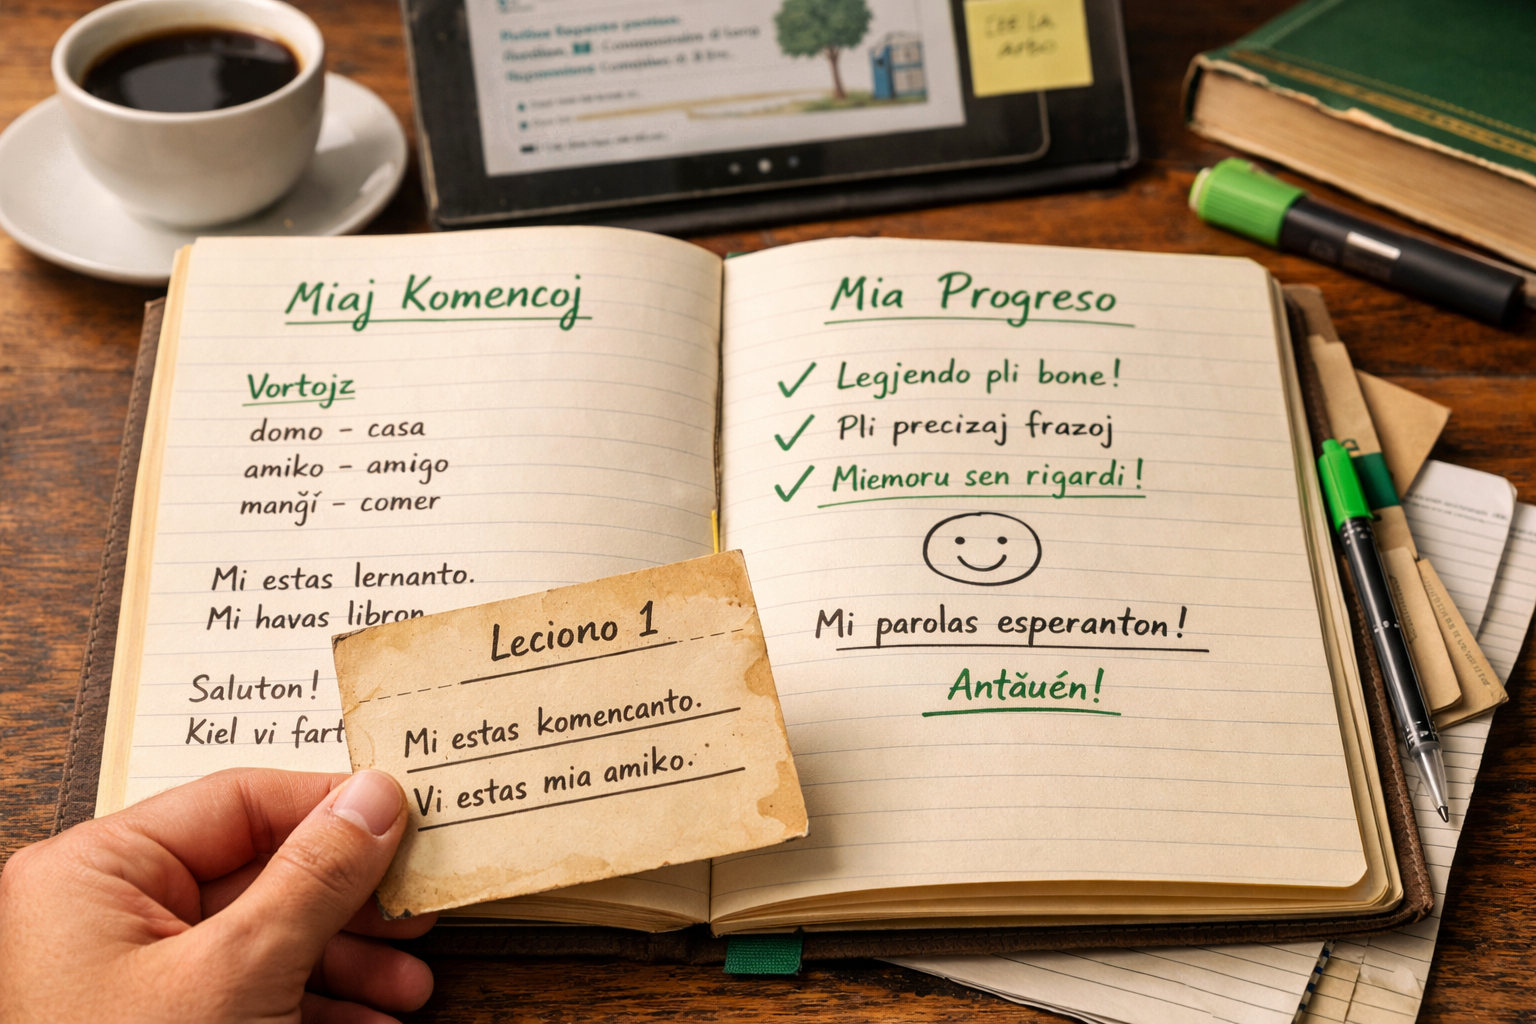 Miaj Komencoj
Vortojz
domo - casa
amiko - amigo
manğí - comer
Mi estas lernanto.
Mi havas libron
Saluton!
Kiel vi fart
Leciono 1
Mi estas komencanto.
Vi estas mia amiko.
Mia Progreso
✓ Legjendo pli bone!
✓ Pli precizaj frazoj
✓ Miemoru sen rigardi!
Mi parolas esperanton!
Antăuén!